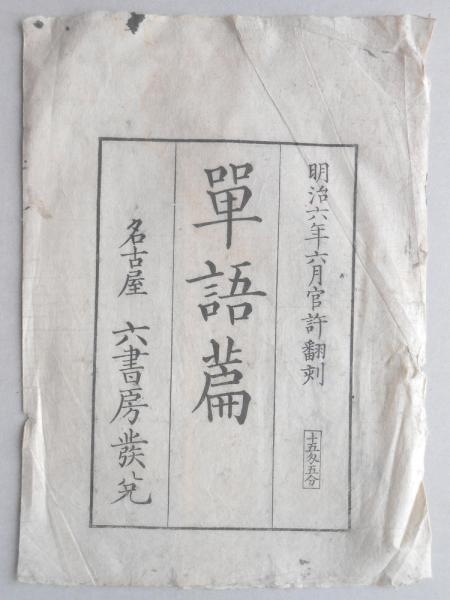 明治六年六月官許翻刻
十五匁五分
單語篇
名古屋 六書房發兌